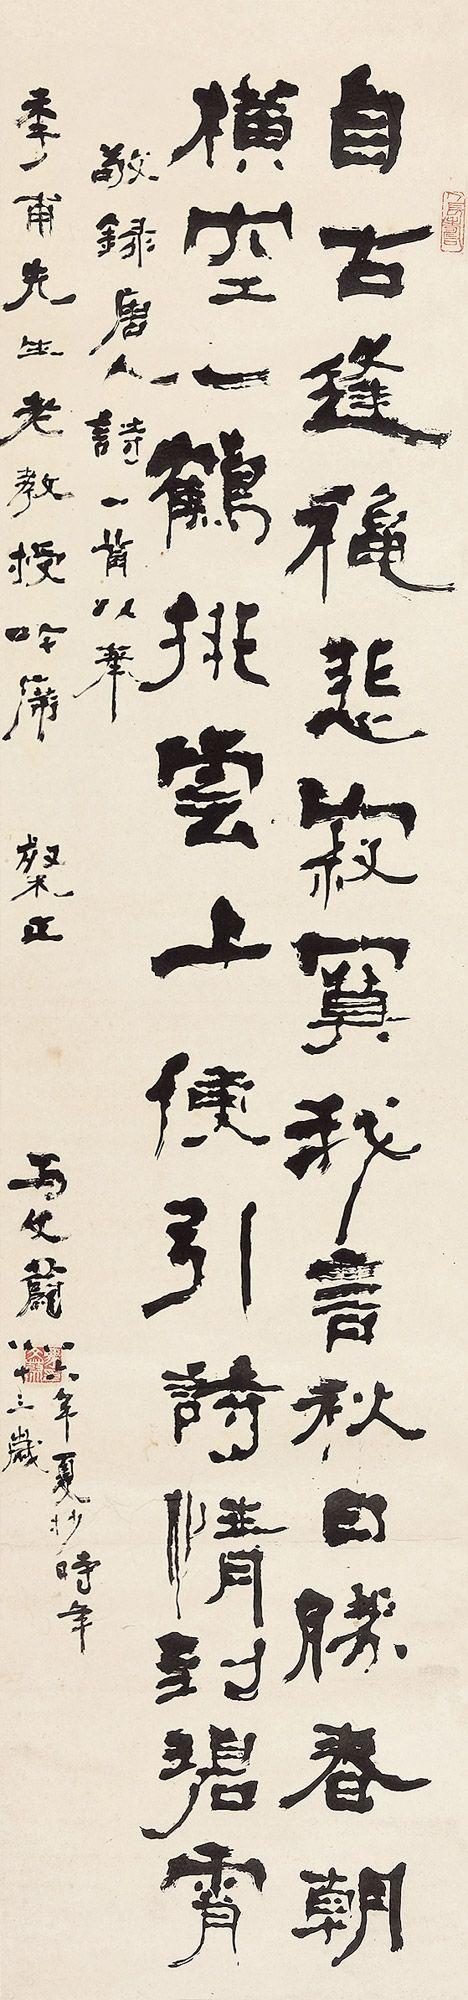 自古逢穐悲寂寞我言秋日勝春朝
橫空一鶴排雲上便引詩情到碧霄
敬錄唐人詩一首以奉
季甫先生老教授吟 粲正
八六年夏杪時年
八十三歲